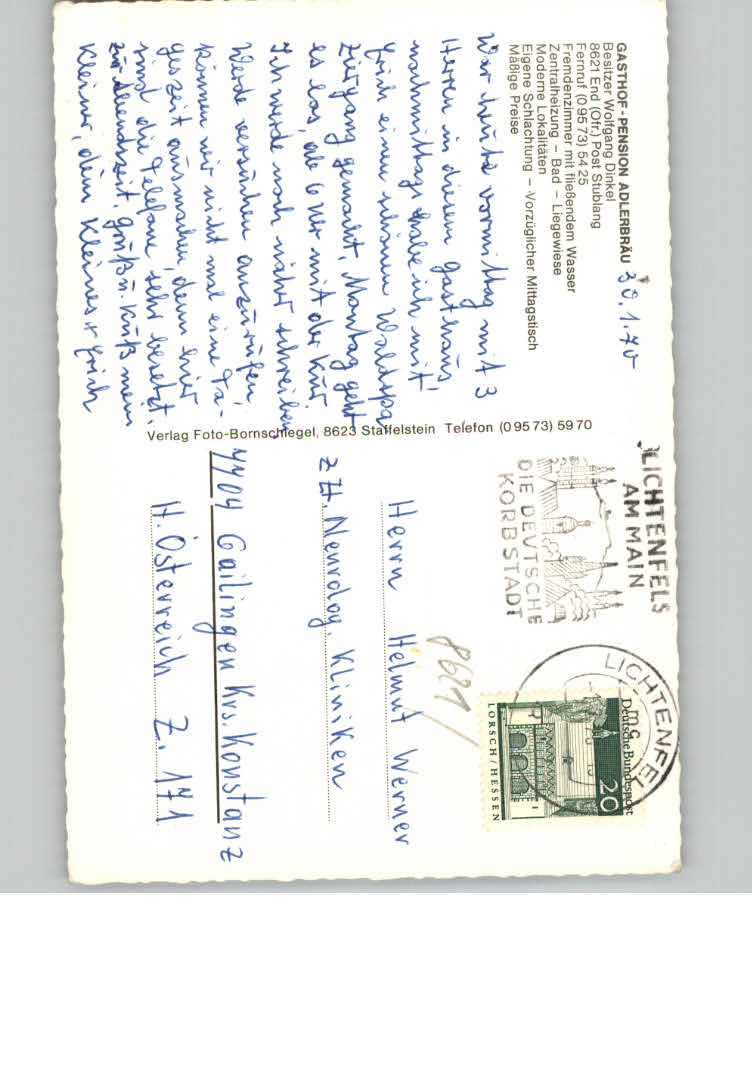 GASTHOF - PENSION ADLERBRÄU
Besitzer Wolfgang Dinkel
8621 End (Ofr.) Post Stublang
Fernruf (0 95 73) 54 25
Fremdenzimmer mit fließendem Wasser
Zentralheizung – Bad – Liegewiese
Moderne Lokalitäten
Eigene Schlachtung – Vorzüglicher Mittagstisch
Mäßige Preise
30.1.70
War heute vormittag mit 3
Herren in diesem Gasthaus,
nachmittags habe ich mit
Erich einen schönen Waldspa
ziergang gemacht, Montag geht
es los, ab 6 Uhr mit der Kur.
Ich werde noch näher schreiben
Werde versuchen anzurufen,
können wir nicht mal eine Ta-
geszeit ausmachen, denn hier
sind die Telefone sehr besetzt.
zur Abendzeit. Gruß u. Kuß mein
Kleiner, dein Kleines + Erich
Verlag Foto-Bornschlegel, 8623 Staffelstein Telefon (0 95 73) 59 70
LICHTENFELS
AM MAIN
DIE DEUTSCHE
KORBSTADT
LICHTENFEL
mc
Deutsche Bundespost
20
LORSCH/HESSEN
8621
Herrn Helmut Werner
z H. Neurolog. Kliniken
7704 Gailingen Krs. Konstanz
H. Österreich Z. 171